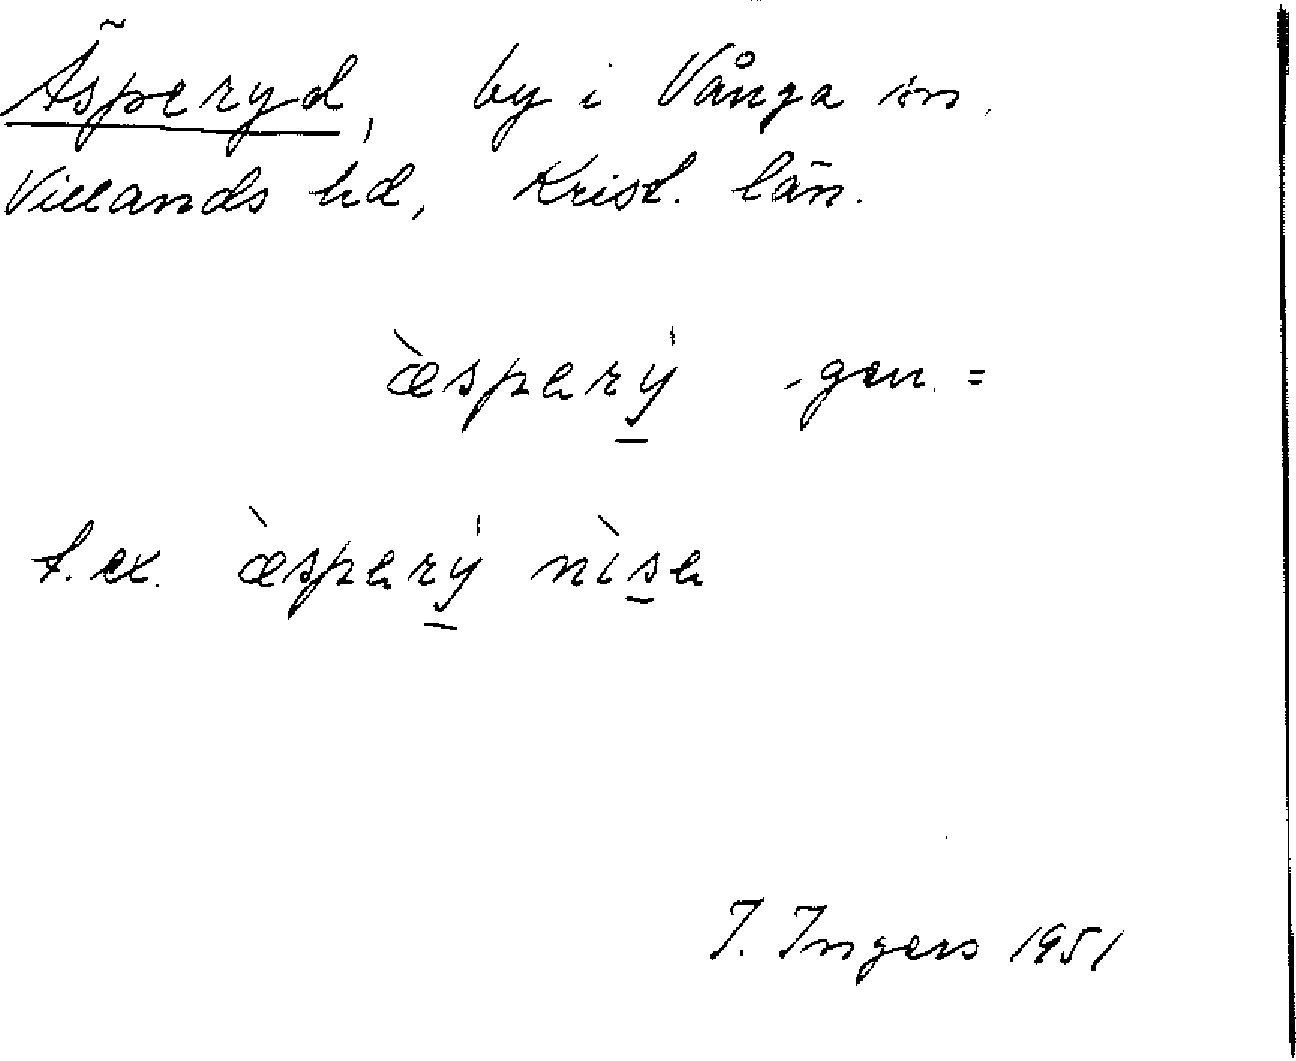 Äsperyd, by i Vånga sn.
Villands hd, Krist. län.
æ̀sperẏ̱ -gen. =
t.ex. æ̀sperẏ̱ nìs̱e
I. Ingers 1951